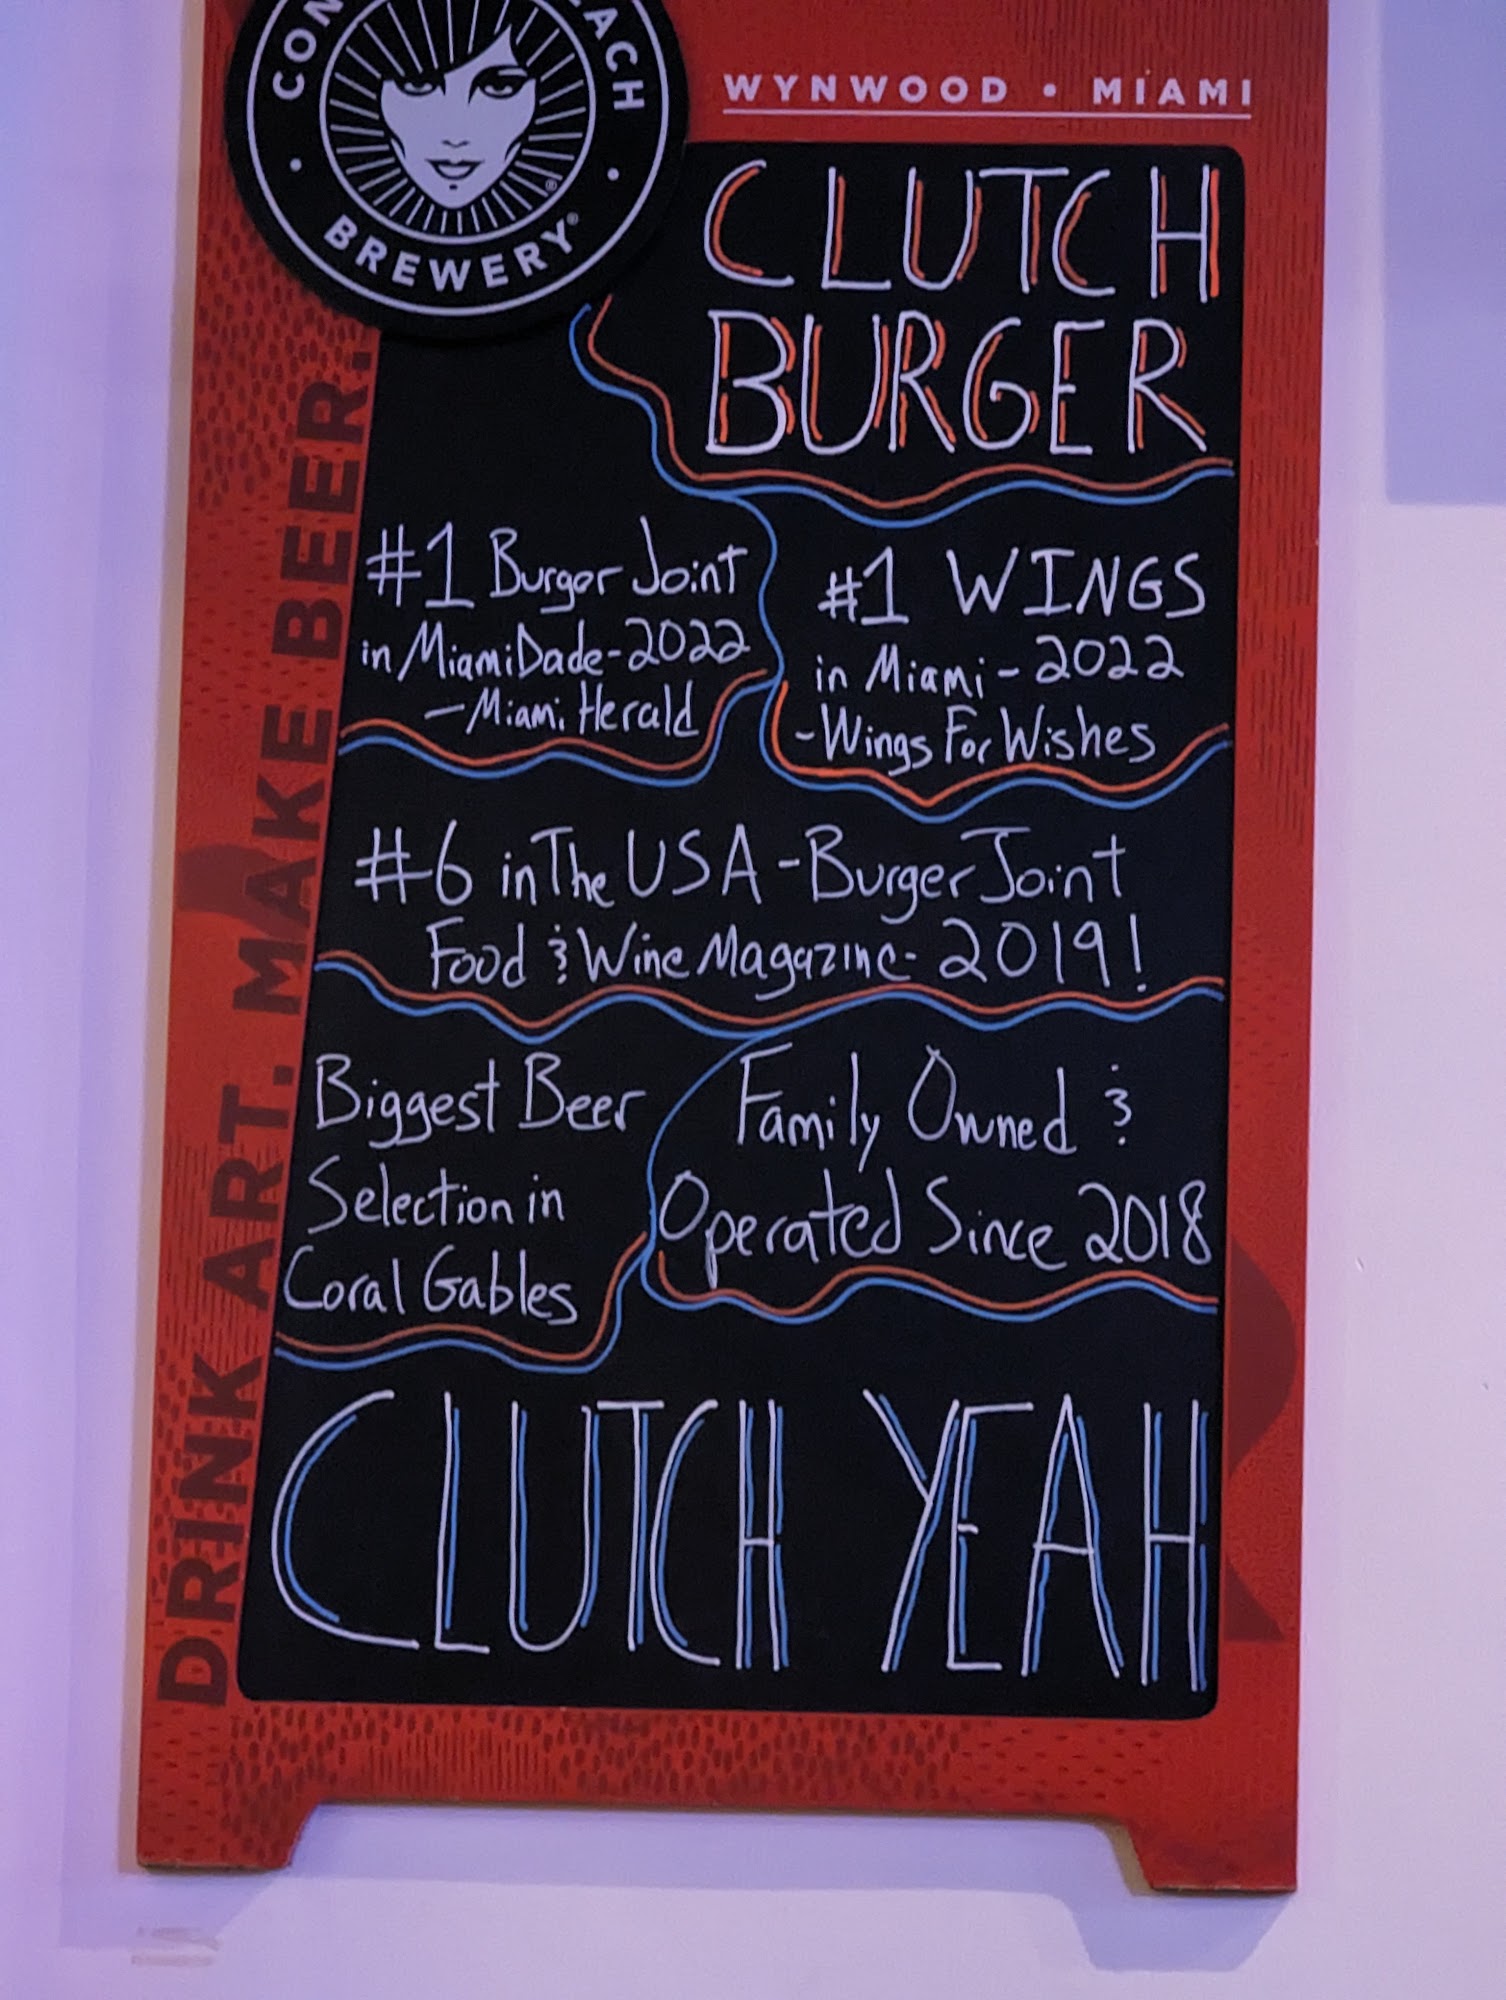 BREWERY
WYNWOOD • MIAMI
CLUTCH
BURGER
#1 Burger Joint
in Miami Dade - 2022
- Miami Herald
#1 WINGS
in Miami - 2022
- Wings For Wishes
#6 in The USA - Burger Joint
Food & Wine Magazine - 2019!
Biggest Beer
Selection in
Coral Gables
Family Owned &
Operated Since 2018
CLUTCH YEAH
DRINK ART. MAKE BEER.